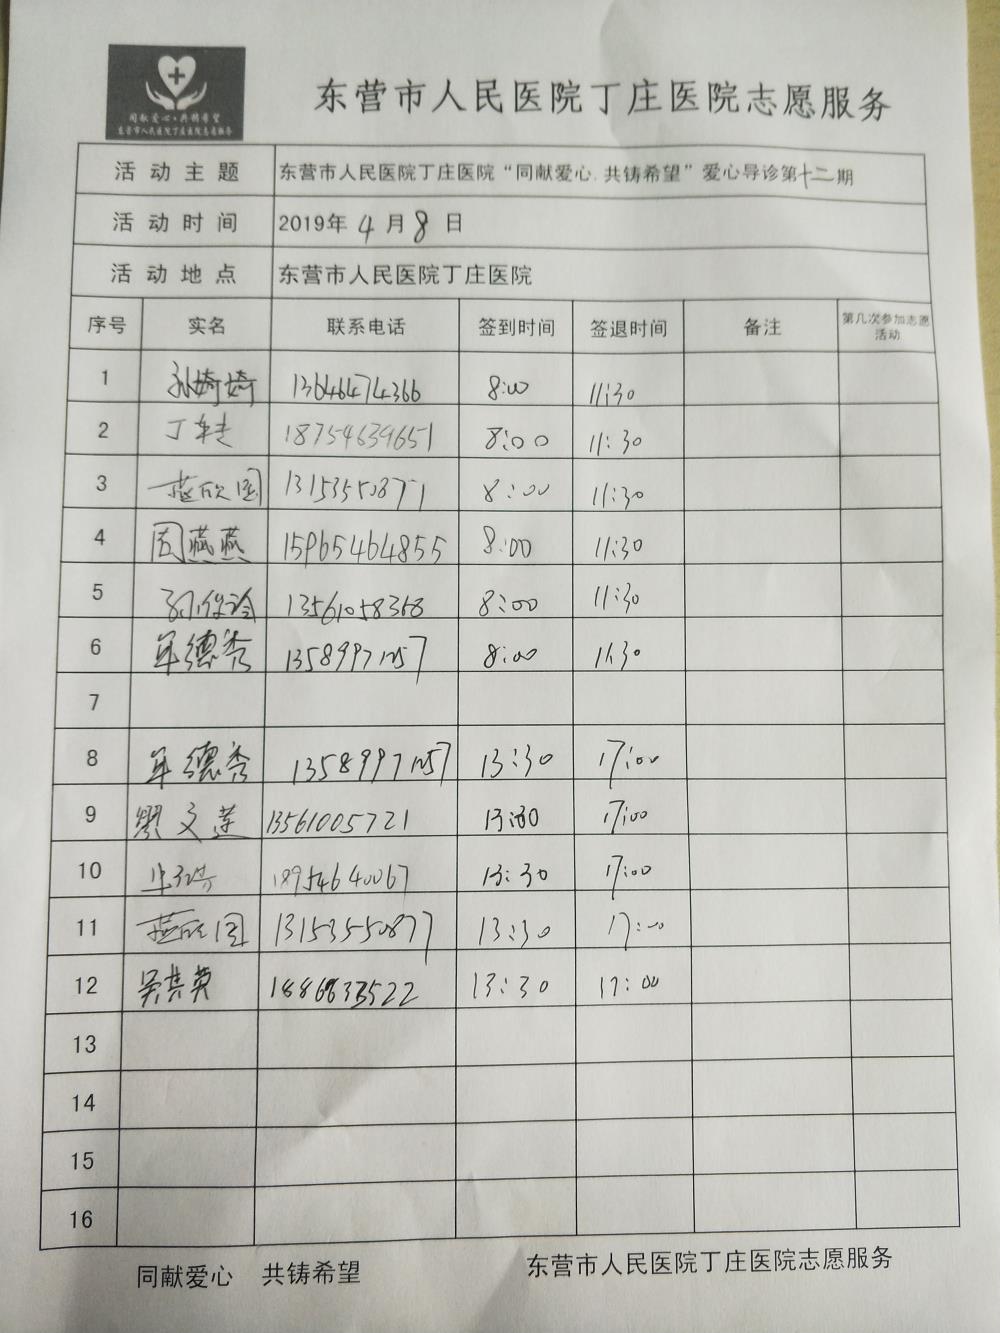 同献爱心·共铸希望
东营市人民医院丁庄医院志愿服务
东营市人民医院丁庄医院志愿服务
活动主题 东营市人民医院丁庄医院“同献爱心.共铸希望”爱心导诊第十二期
活动时间 2019年4月8日
活动地点 东营市人民医院丁庄医院
序号 实名 联系电话 签到时间 签退时间 备注 第几次参加志愿活动
1 孙婷婷 13646474366 8:00 11:30
2 丁 18754639651 8:00 11:30
3 燕欣国 13153550877 8:00 11:30
4 周燕燕 15965464855 8:00 11:30
5 13561058368 8:00 11:30
6 年德秀 13589971057 8:00 11:30
7
8 年德秀 13589971057 13:30 17:00
9 文莲 13561005721 13:30 17:00
10 18954640067 13:30 17:00
11 燕欣国 13153550877 13:30 17:00
12 吴其英 13:30 17:00
13
14
15
16
同献爱心 共铸希望 东营市人民医院丁庄医院志愿服务